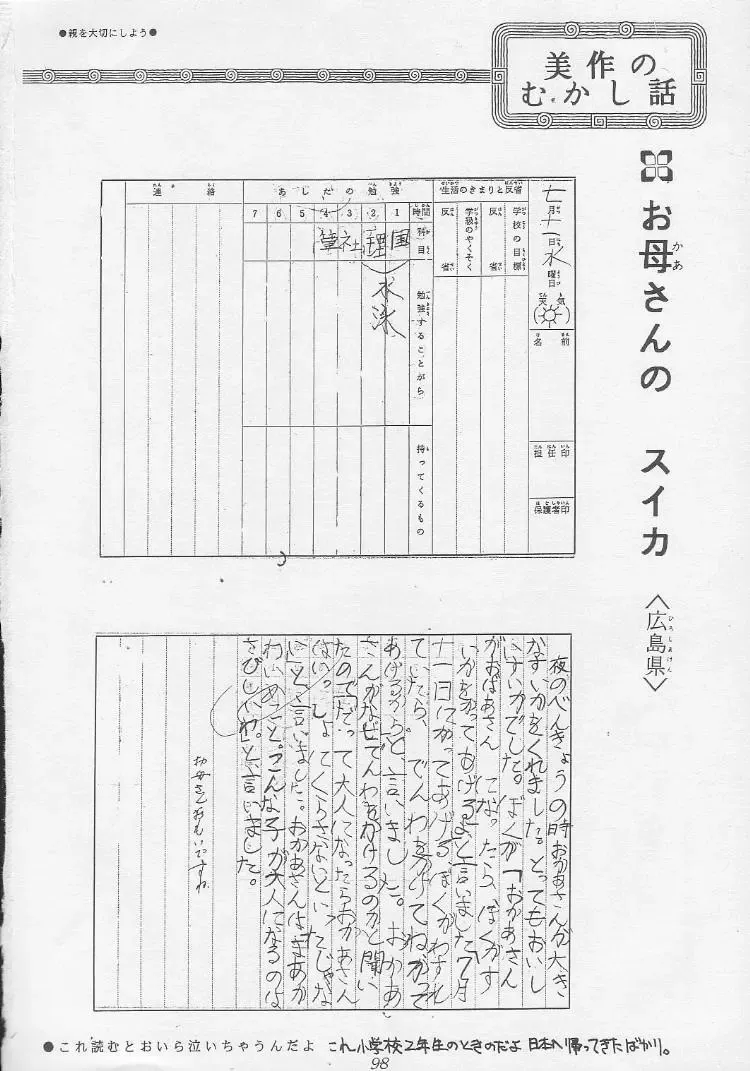 ●親を大切にしよう●
美作の
むかし話
お母さんの スイカ
〈広島県〉
七月十一日水曜日
天気
名前
担任印
保護者印
生活のきまりと反省
学校の目標
反省
学級のやくそく
反省
あしたの勉強
時間 1 2 3 4 5 6 7
科目 国 理 社
水泳
勉強することがら
持ってくるもの
連絡
夜のべんきょうの時おかあさんが大き
なすいかをくれました。とってもおいし
いすいかでした。ぼくが「おかあさん
がおばあさんになったら、ぼくがす
いかをかってあげるよ」と言いました7月
十一日にかってあげるぼくがわすれ
ていたら、でんわをかけてね。かって
あげるからと、言いました。おかあ
さんがなぜでんわをかけるのかと聞い
たので「だって大人になったらおかあさん
はいっしょにくらさないといったじゃな
い」と言いました。おかあさんは「まあか
わいいこと。こんな子が大人になるのは
さびしいわ。」と、言いました。
お母さんおもいですね
●これ読むとおいら泣いちゃうんだよ これ小学校2年生のときのだよ 日本へ帰ってきたばかり。
98